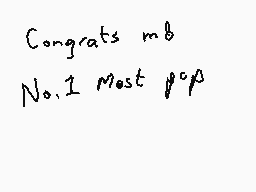 Congrats m8
No.1 Most pop